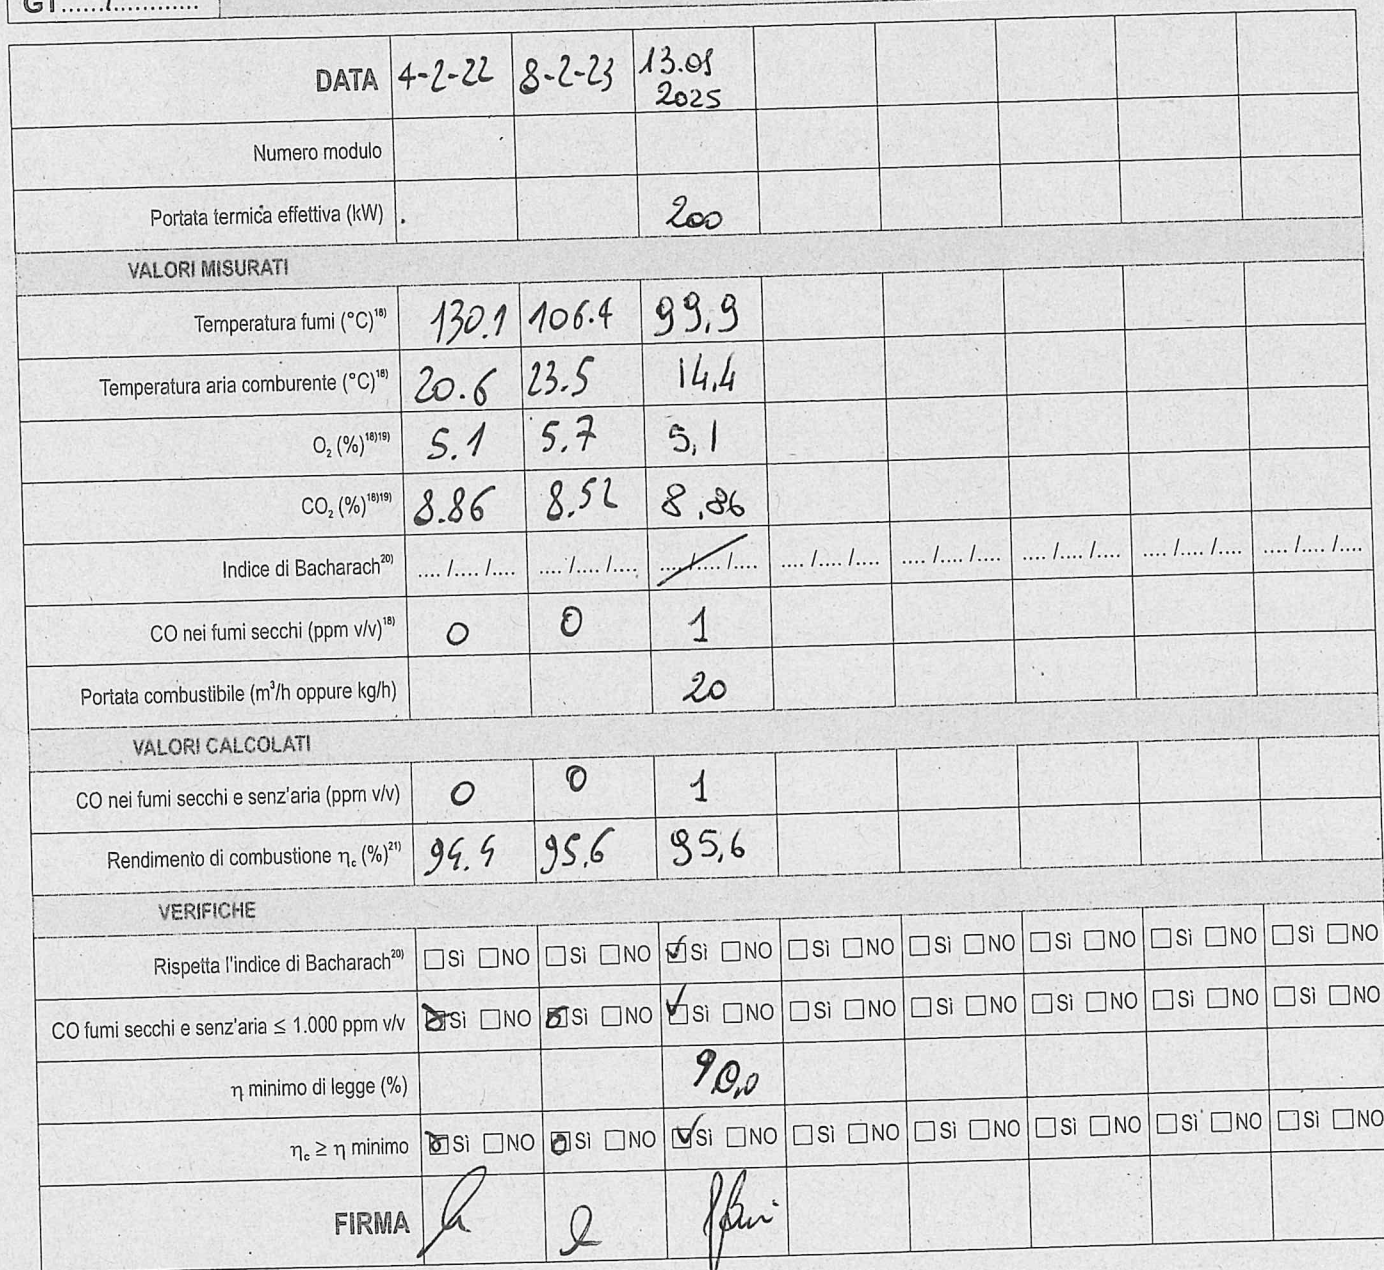 GT....../............
DATA 4-2-22 8-2-23 13.01 2025
Numero modulo
Portata termica effettiva (kW) 200
VALORI MISURATI
Temperatura fumi (°C)18) 130.1 106.4 99,9
Temperatura aria comburente (°C)18) 20.6 23.5 14,4
O2 (%)18)19) 5.1 5.7 5,1
CO2 (%)18)19) 8.86 8.52 8,86
Indice di Bacharach20) .... /.... /.... .... /.... /.... .... /.... /.... .... /.... /.... .... /.... /.... .... /.... /.... .... /.... /.... .... /.... /....
CO nei fumi secchi (ppm v/v)18) 0 0 1
Portata combustibile (m³/h oppure kg/h) 20
VALORI CALCOLATI
CO nei fumi secchi e senz'aria (ppm v/v) 0 0 1
Rendimento di combustione ηc (%)21) 95.6 95,6
VERIFICHE
Rispetta l'indice di Bacharach20) □Sì □NO □Sì □NO ☑Sì □NO □Sì □NO □Sì □NO □Sì □NO □Sì □NO □Sì □NO
CO fumi secchi e senz'aria ≤ 1.000 ppm v/v ☒Sì □NO ☒Sì □NO ☑Sì □NO □Sì □NO □Sì □NO □Sì □NO □Sì □NO □Sì □NO
η minimo di legge (%) 90,0
ηc ≥ η minimo ☒Sì □NO ☒Sì □NO ☑Sì □NO □Sì □NO □Sì □NO □Sì □NO □Sì □NO □Sì □NO
FIRMA